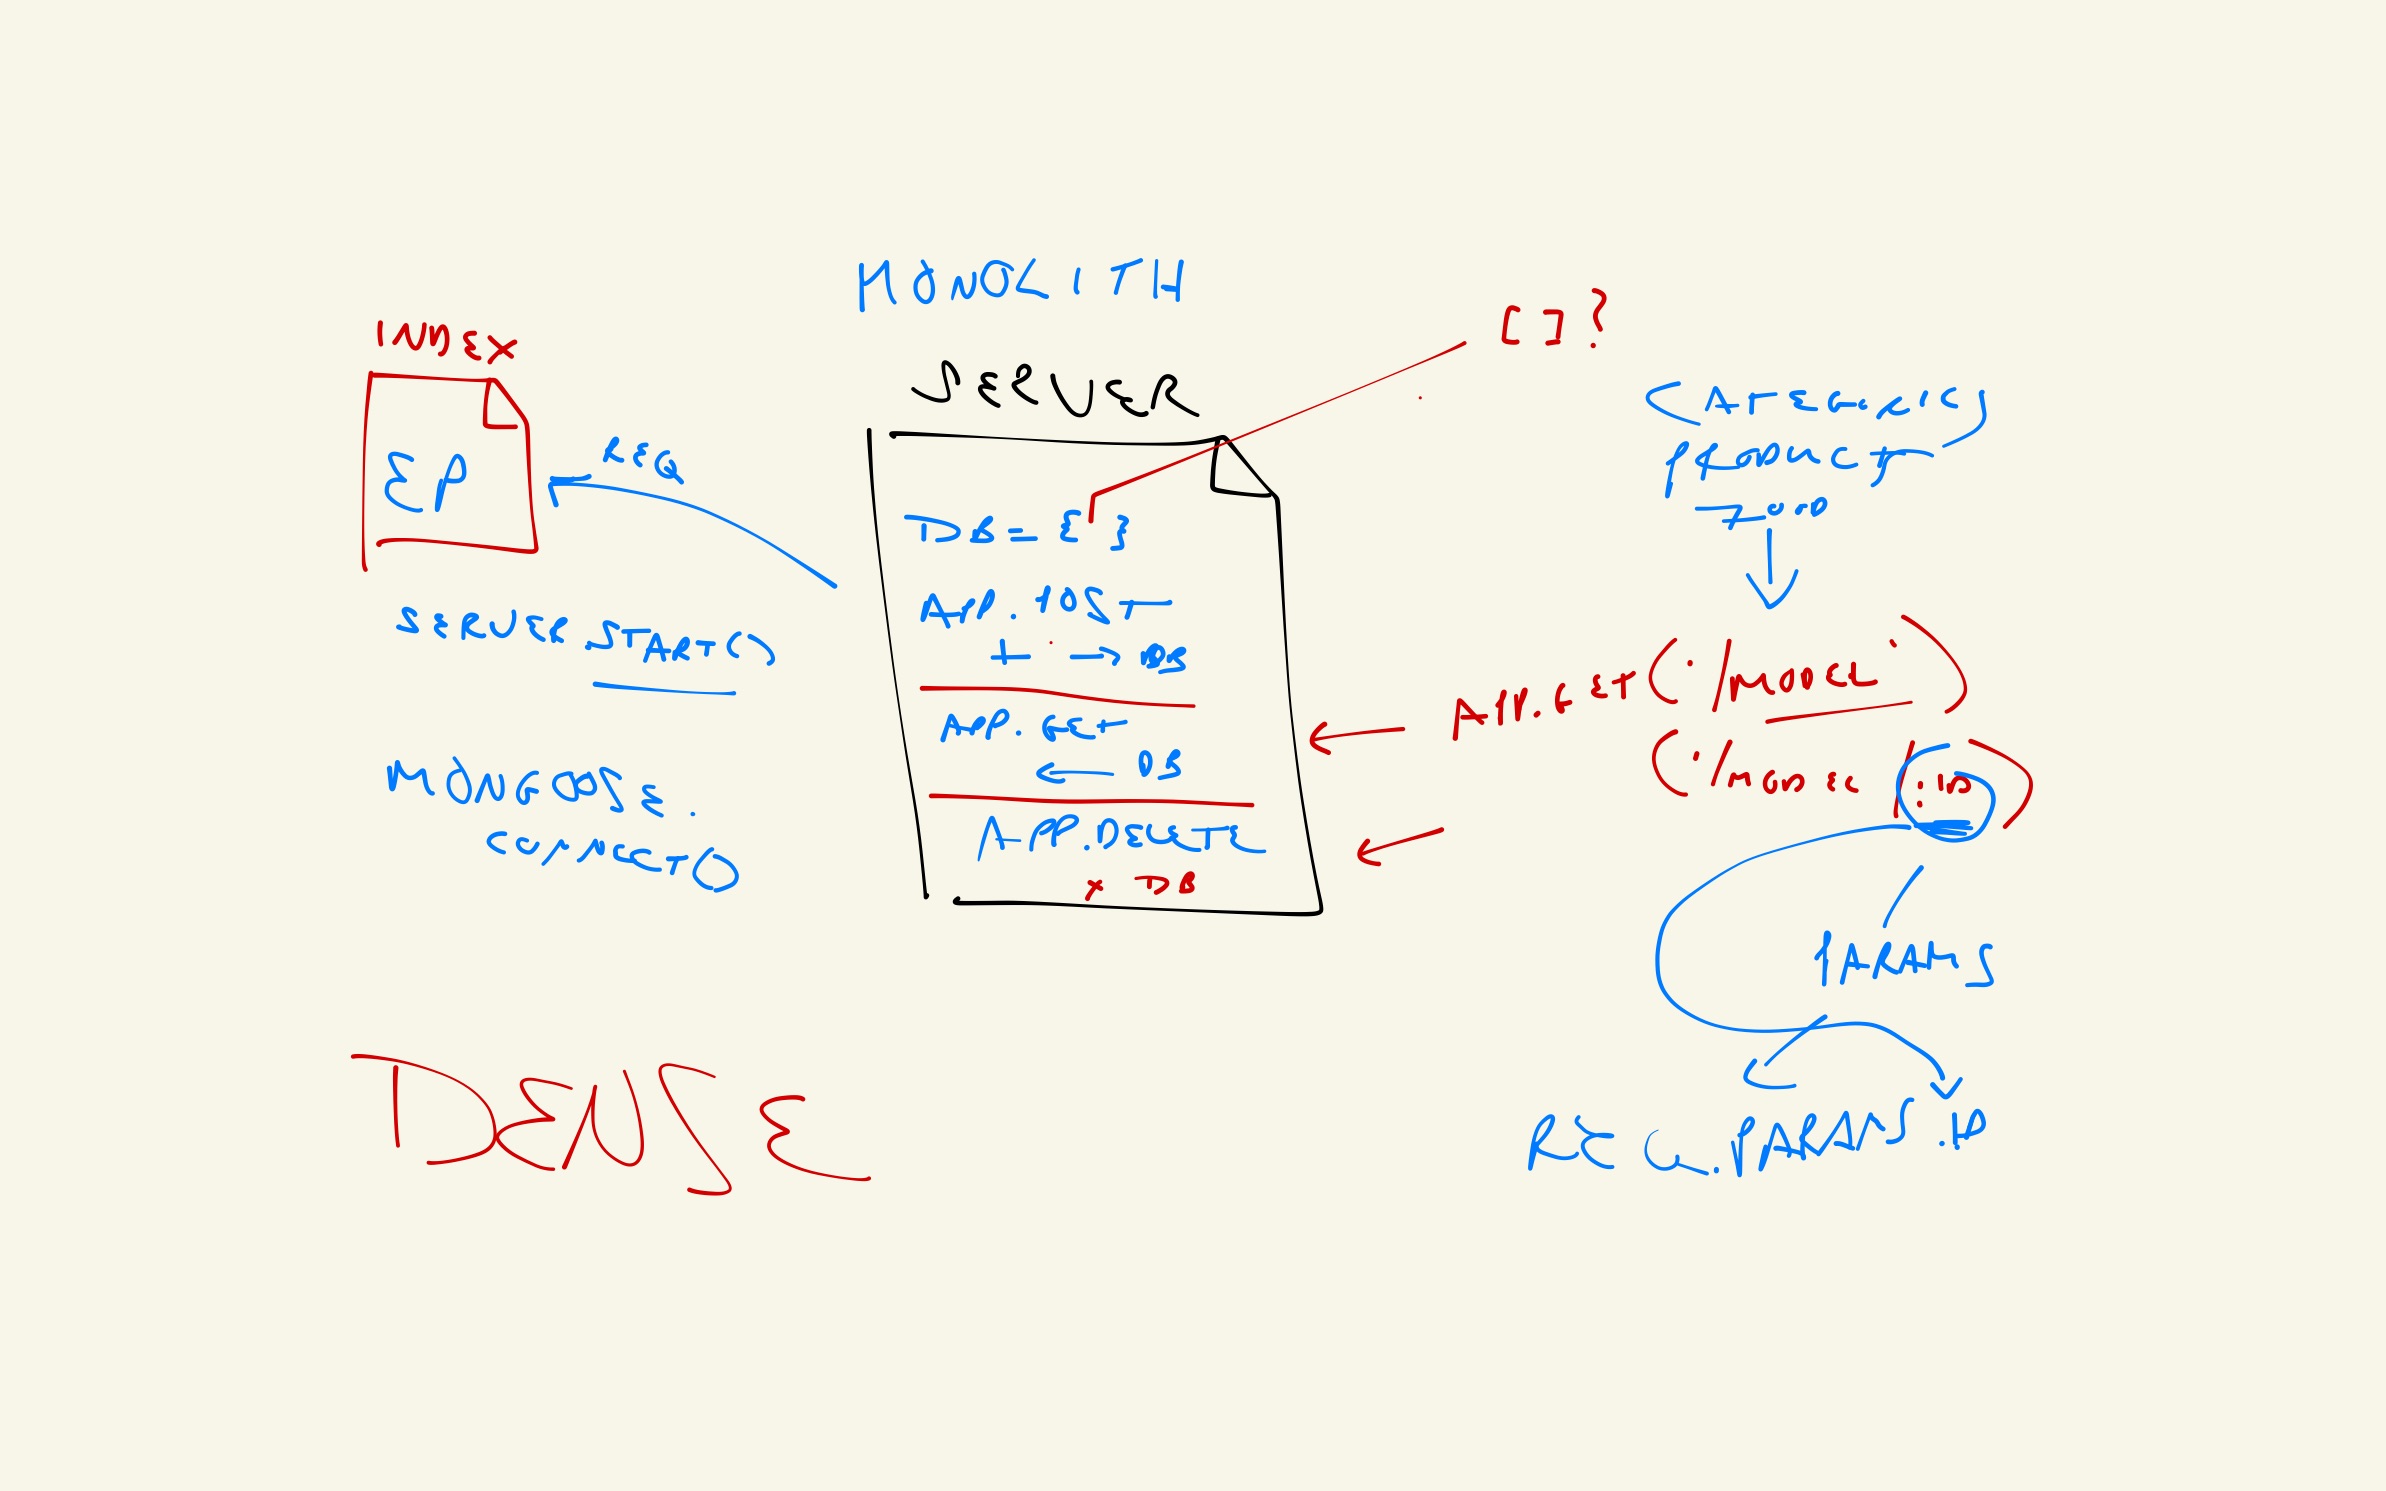 MONOLITH
INDEX
EP
REQ
SERVER.START()
MONGOOSE.
CONNECT()
DENSE
SERVER
DB = { }
APP.POST
+ → DB
APP.GET
← DB
APP.DELETE
x DB
[ ]?
CATEGORIES
PRODUCTS
ZOOD
APP.GET('/MODEL')
('/MODEL/:ID)
PARAMS
REQ.PARAMS.ID